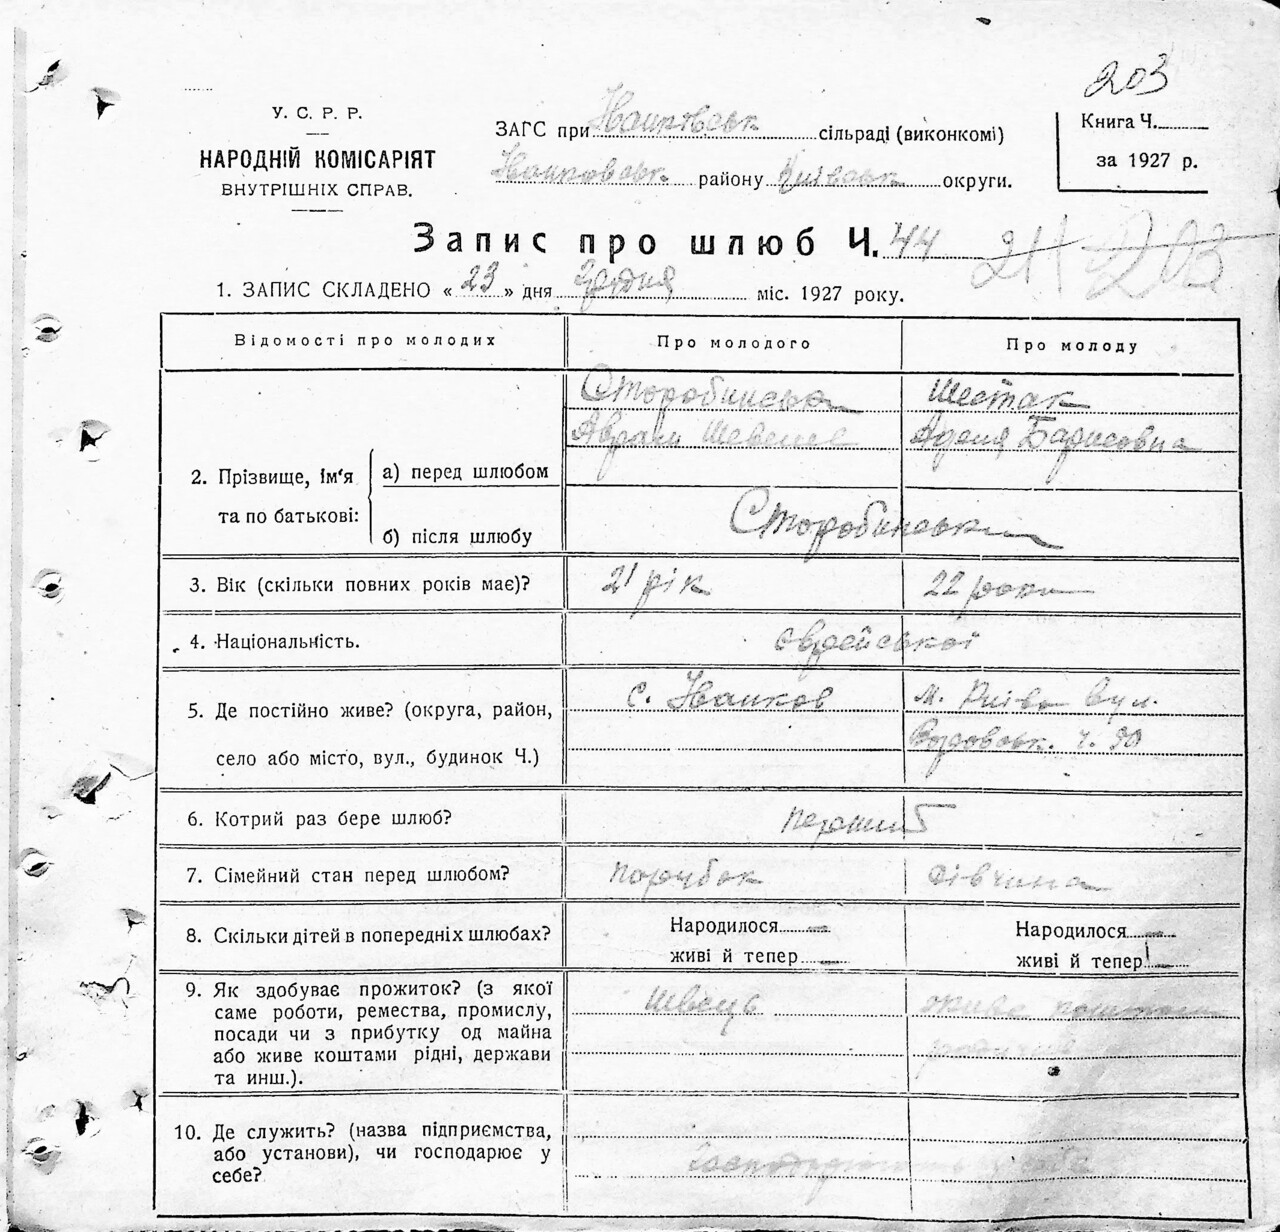 203
У. С. Р. Р.
НАРОДНІЙ КОМІСАРІЯТ
ВНУТРІШНІХ СПРАВ.
ЗАГС при сільраді (виконкомі)
району Київськ округи.
Книга Ч.
за 1927 р.
Запис про шлюб Ч. 44
211 203
1. ЗАПИС СКЛАДЕНО « 23 » дня Грудня міс. 1927 року.
Відомості про молодих Про молодого Про молоду
2. Прізвище, ім'я та по батькові:
а) перед шлюбом
Шестак
Аврам
Аделя Борисовна
б) після шлюбу
3. Вік (скільки повних років має)? 21 рік 22 роки
4. Національність. єврейської
5. Де постійно живе? (округа, район, с. Іванков м. Київ вул.
село або місто, вул., будинок Ч.) ч. 90
6. Котрий раз бере шлюб? перший
7. Сімейний стан перед шлюбом? парубок дівчина
8. Скільки дітей в попередніх шлюбах? Народилося — Народилося —
живі й тепер — живі й тепер —
9. Як здобуває прожиток? (з якої швець живе коштами
саме роботи, ремества, промислу,
посади чи з прибутку од майна
або живе коштами рідні, держави
та инш.).
10. Де служить? (назва підприємства,
або установи), чи господарює у
себе?